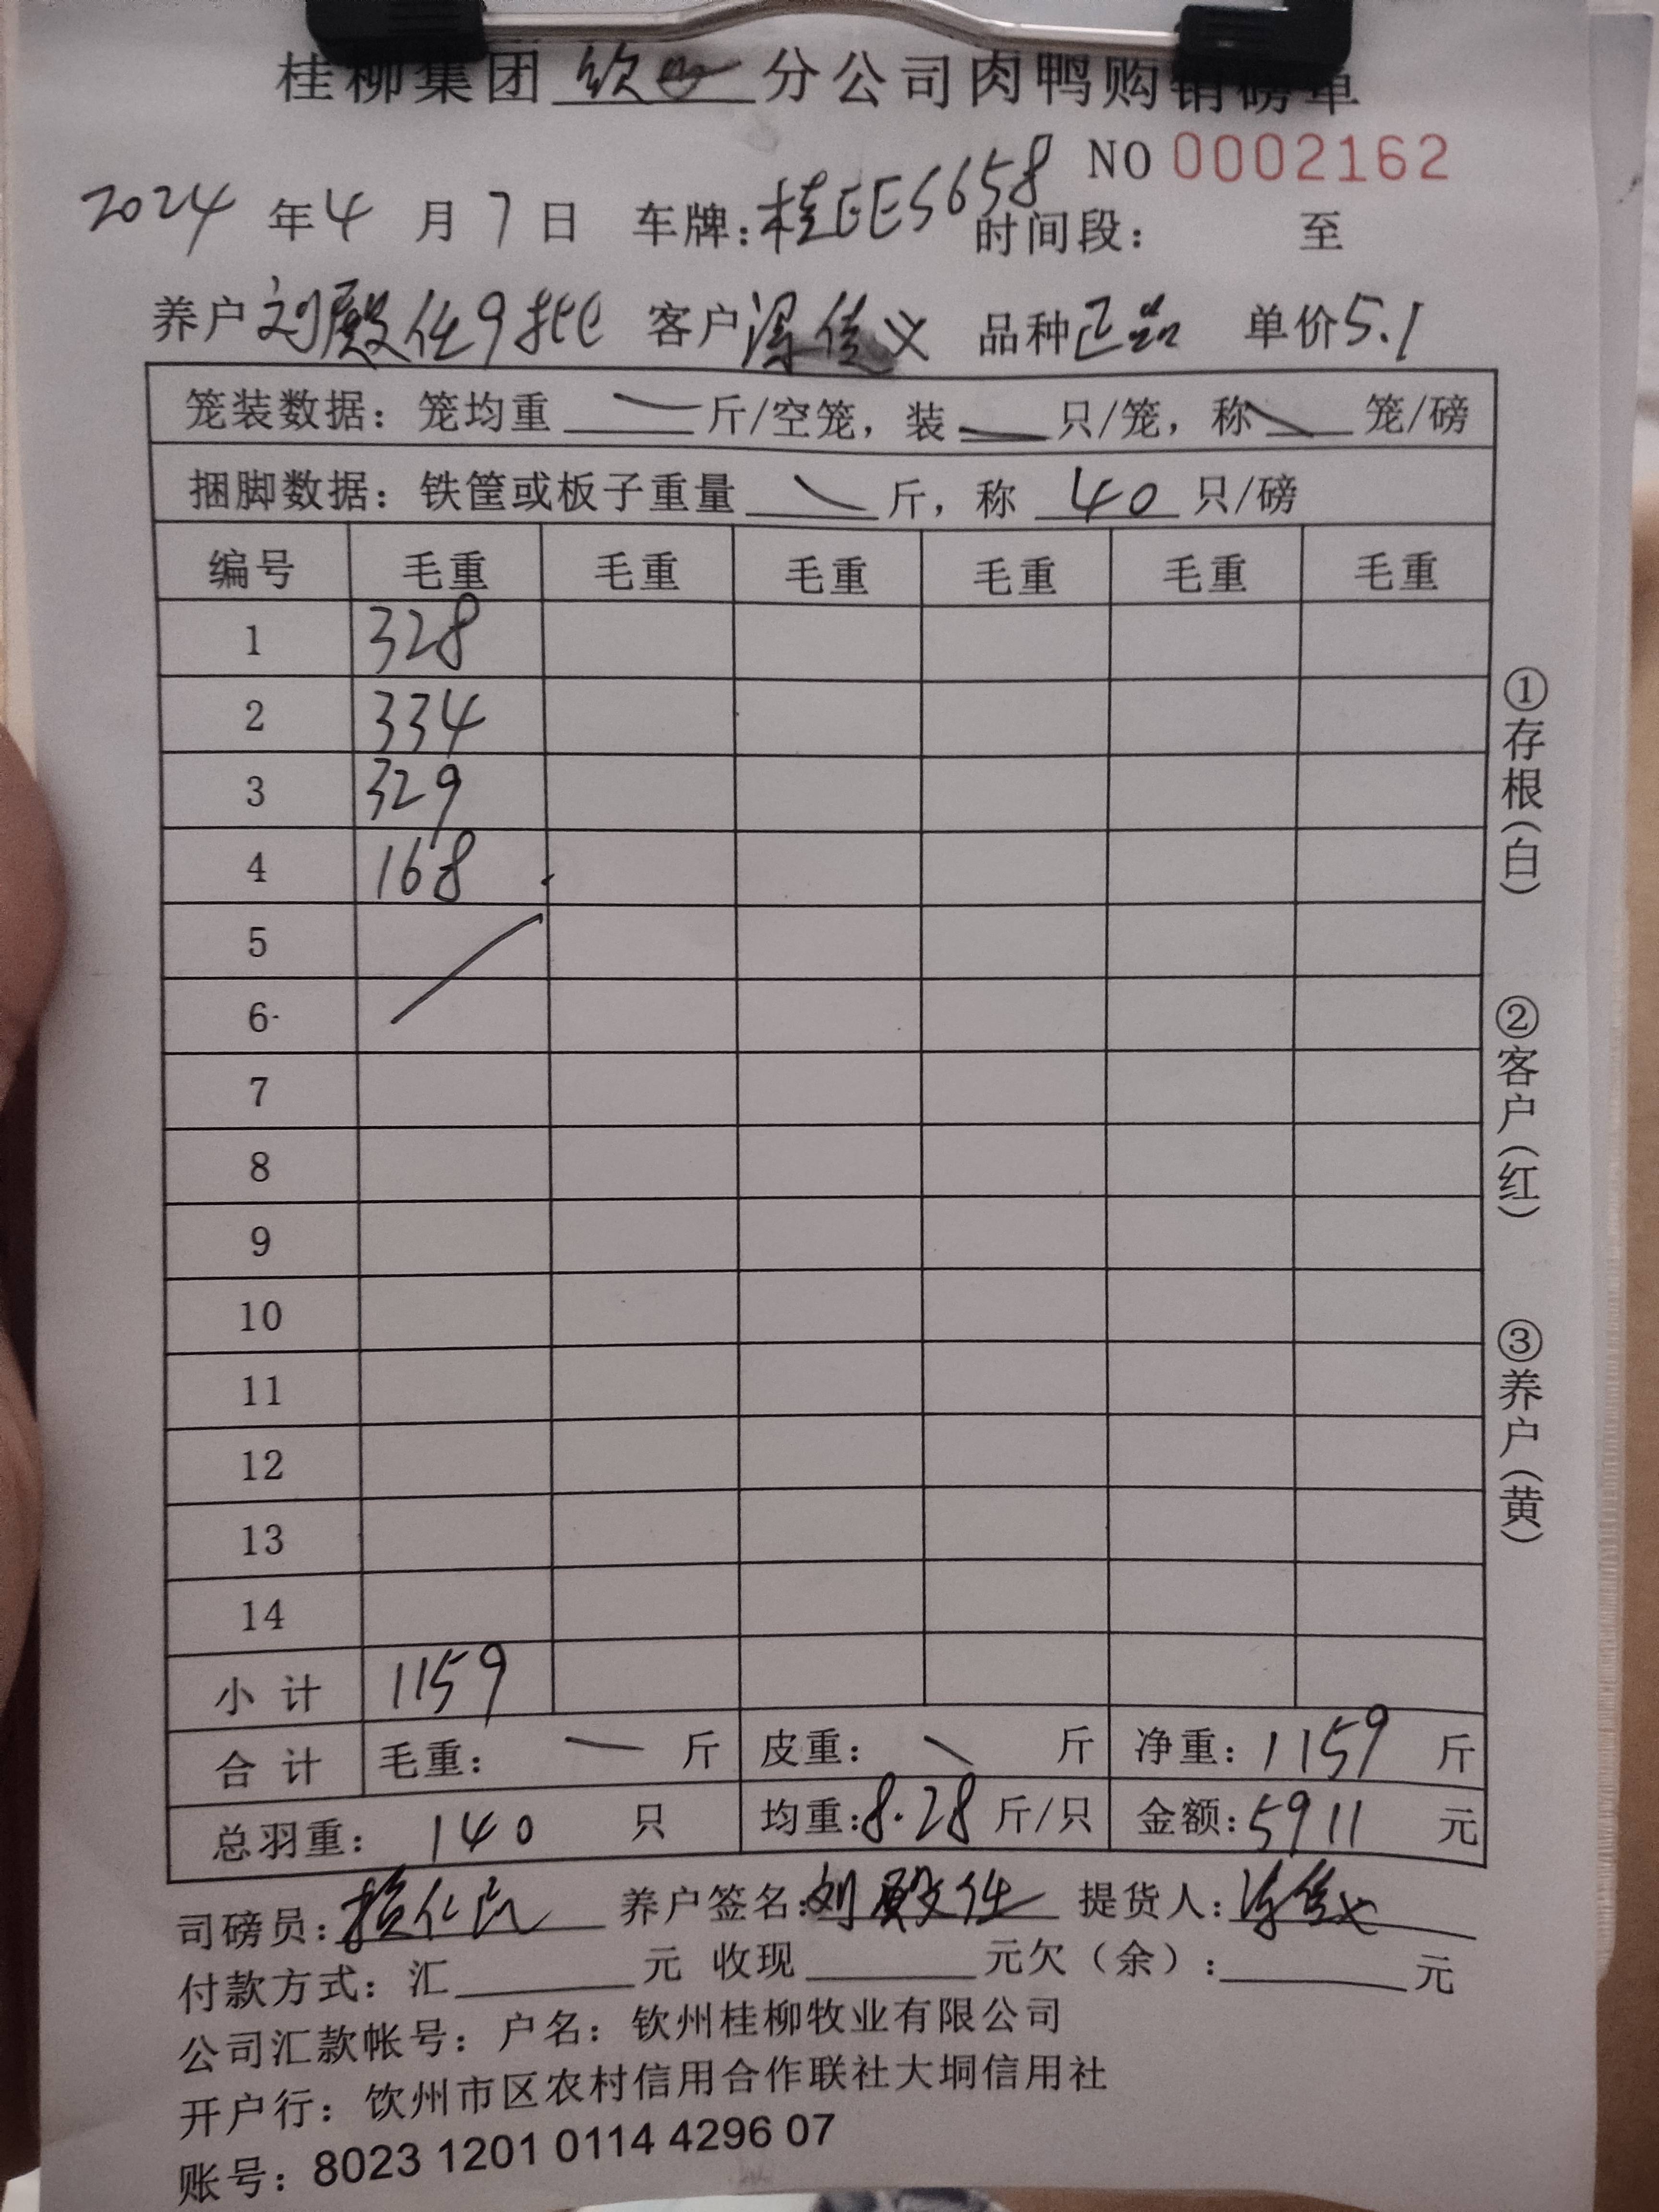 桂柳集团 钦州 分公司肉鸭购销磅单
NO 0002162
2024 年 4 月 7 日 车牌：桂EES658 时间段： 至
养户 刘殿任9批 客户 义 品种 正品 单价 5.1
笼装数据：笼均重 斤/空笼，装 只/笼，称 笼/磅
捆脚数据：铁筐或板子重量 斤，称 40 只/磅
编号 毛重 毛重 毛重 毛重 毛重 毛重
1 328
2 334
3 329
4 168
5
6
7
8
9
10
11
12
13
14
小计 1159
合计 毛重： 斤 皮重： 斤 净重：1159 斤
总羽重： 140 只 均重：8.28 斤/只 金额：5911 元
司磅员： 养户签名：刘殿任 提货人：
付款方式：汇 元 收现 元欠（余）： 元
公司汇款帐号：户名：钦州桂柳牧业有限公司
开户行：钦州市区农村信用合作联社大垌信用社
账号：8023 1201 0114 4296 07
①存根（白）
②客户（红）
③养户（黄）